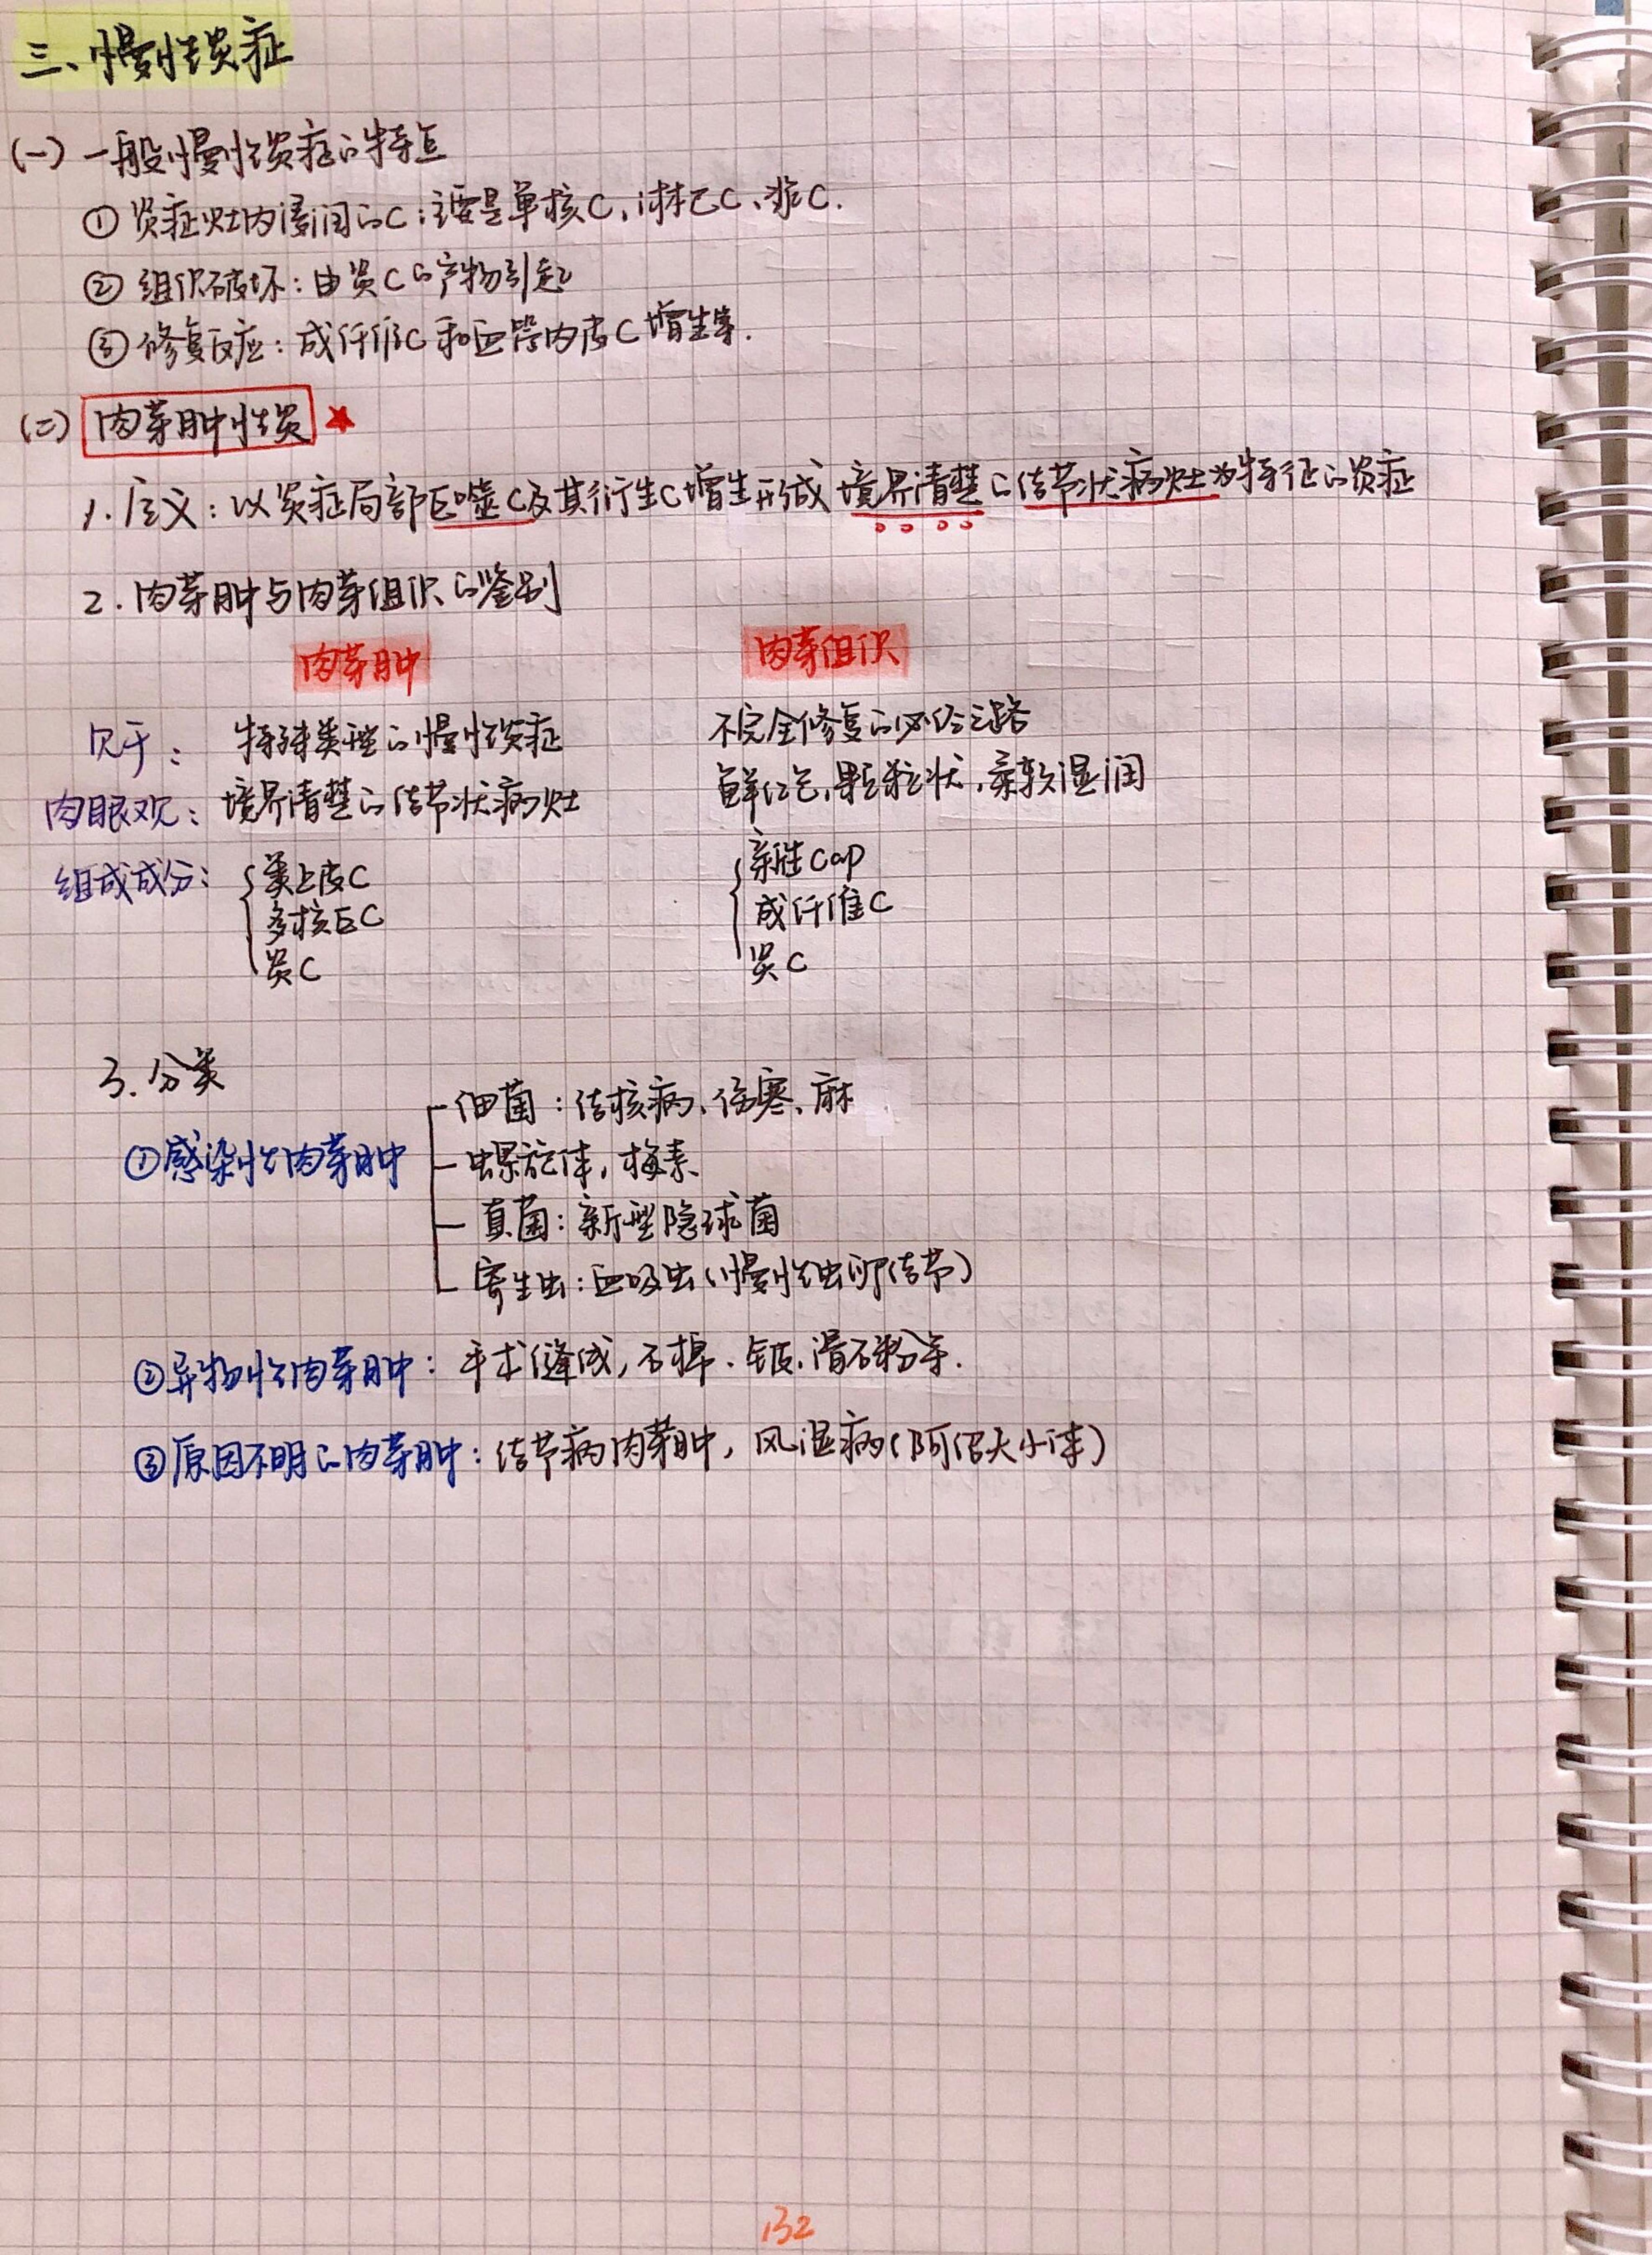 三、慢性炎症
(一) 一般慢性炎症的特点
① 炎症灶内浸润的C:主要是单核C、淋巴C、浆C.
② 组织破坏:由炎C的产物引起
③ 修复反应:成纤维C和血管内皮C增生等.
(二) 肉芽肿性炎 ★
1.定义:以炎症局部巨噬C及其衍生C增生形成境界清楚的结节状病灶为特征的炎症
2.肉芽肿与肉芽组织的鉴别
肉芽肿 肉芽组织
见于: 特殊类型的慢性炎症 不完全修复的必经之路
肉眼观: 境界清楚的结节状病灶 鲜红色,颗粒状,柔软湿润
组成成分: 类上皮C 新生cap
多核巨C 成纤维C
炎C 炎C
3.分类
细菌:结核病、伤寒、麻
①感染性肉芽肿 螺旋体,梅毒、
真菌:新型隐球菌
寄生虫:血吸虫(慢性虫卵结节)
②异物性肉芽肿: 手术缝线,石棉、铍、滑石粉等.
③原因不明的肉芽肿:结节病肉芽肿,风湿病(阿佰夫小体)
132